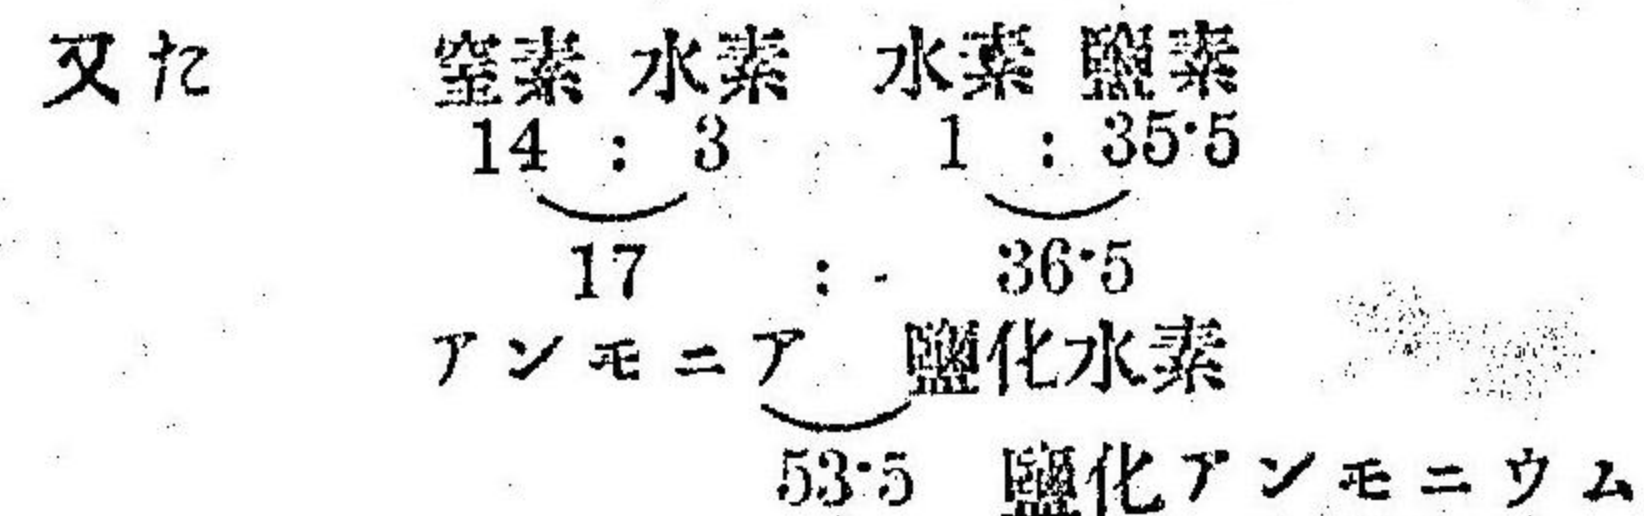 又た 窒素 水素 水素 鹽素
14 : 3 1 : 35·5
17 : 36·5
アンモニア 鹽化水素
53·5 鹽化アンモニウム